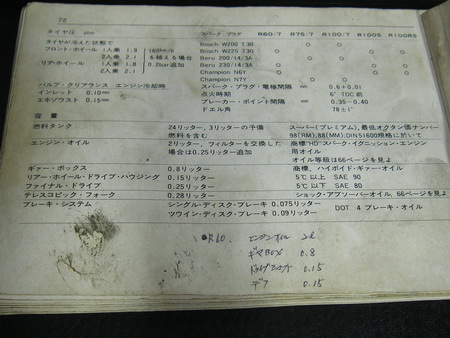 72
タイヤ圧 atm スパーク・プラグ R60/7 R75/7 R100/7 R100S R100RS
タイヤが冷えた状態で Bosch W200 T30 ○ ○
フロント・ホイール 1人乗 1.9 160km/h Bosch W225 T30 ○ ○ ○
2人乗 2.1 を越える場合 Beru 200/14/3A ○ ○
リア・ホイール 1人乗 1.8 0.2bar追加 Beru 230/14/3A ○ ○ ○
2人乗 2.1 Champion N6Y
Champion N7Y
バルブ・クリアランス エンジン冷却時 スパーク・プラグ・電極間隔 0.6+0.01
インレット 0.10㎜ 点火時期 6° TDC 前
エキゾウスト 0.15㎜ ブレーカー・ポイント間隔 0.35-0.40
ドエル角 78±1°
容量
燃料タンク 24リッター, 3リッターの予備 スーパー(プレミアム), 最低オクタン価ナンバー
98(RM), 88(MM); DIN51600規格に於いて
エンジン・オイル 2リッター, フィルターを交換した 商標"HD"スパーク・イグニション・エンジン
場合は0.25リッター追加 用オイル
オイル等級は66ページを見よ
ギァー・ボックス 0.8リッター 商標, ハイポイド・ギァー・オイル
リアー・ホイール・ドライブ・ハウジング 0.15リッター 5℃以上 SAE 90
ファイナル・ドライブ 0.25リッター 5℃以下 SAE 80
テレスコピック・フォーク 0.28リッター ショック・アブソーバーオイル, 66ページを見よ
ブレーキ・システム シングル・ディスク・ブレーキ 0.075リッター
ツウイン・ディスク・ブレーキ 0.09リッター DOT 4 ブレーキ・オイル
R60 エンジンオイル 2ℓ
ギヤBOX 0.8
ドライブシャフト 0.15
デフ 0.15